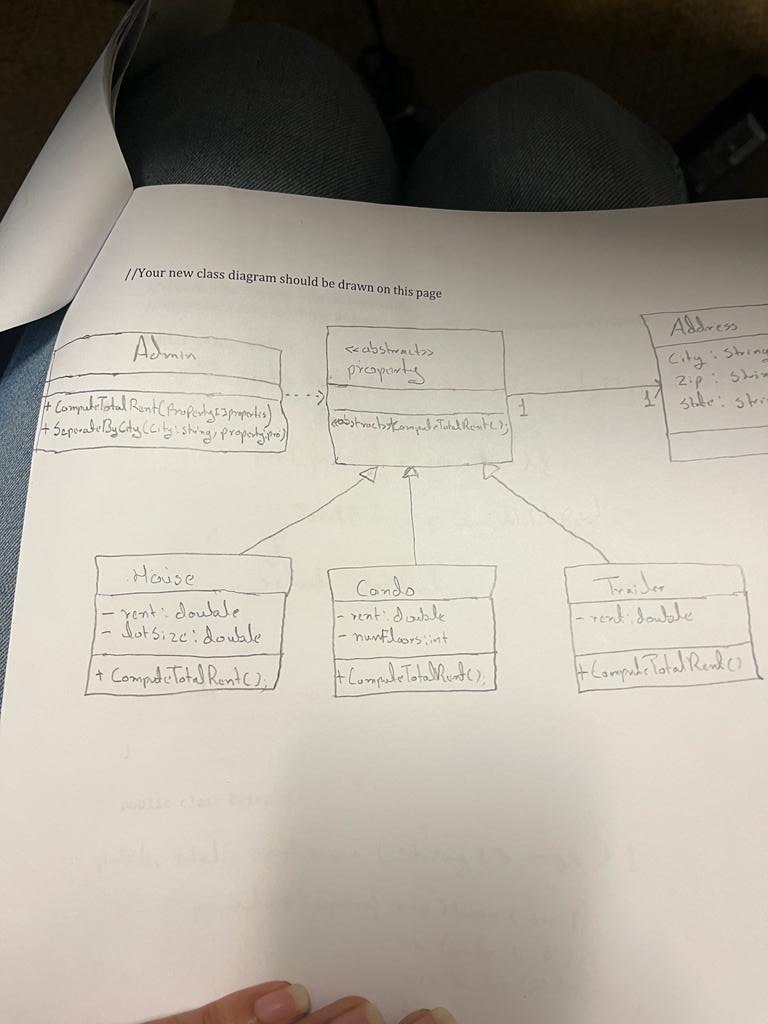 //Your new class diagram should be drawn on this page
Admin
+ ComputeTotalRent(Property[] propertis)
+ SeperateByCity(City: string, property:pro)
<<abstract>>
property
<<abstract>>+ComputeTotalRent();
1
1
Address
City: String
Zip:
State:
House
- rent: double
- lotSize: double
+ ComputeTotalRent();
Condo
- rent: double
- numFloors: int
+ ComputeTotalRent();
Trailer
- rent: double
+ ComputeTotalRent()
public class